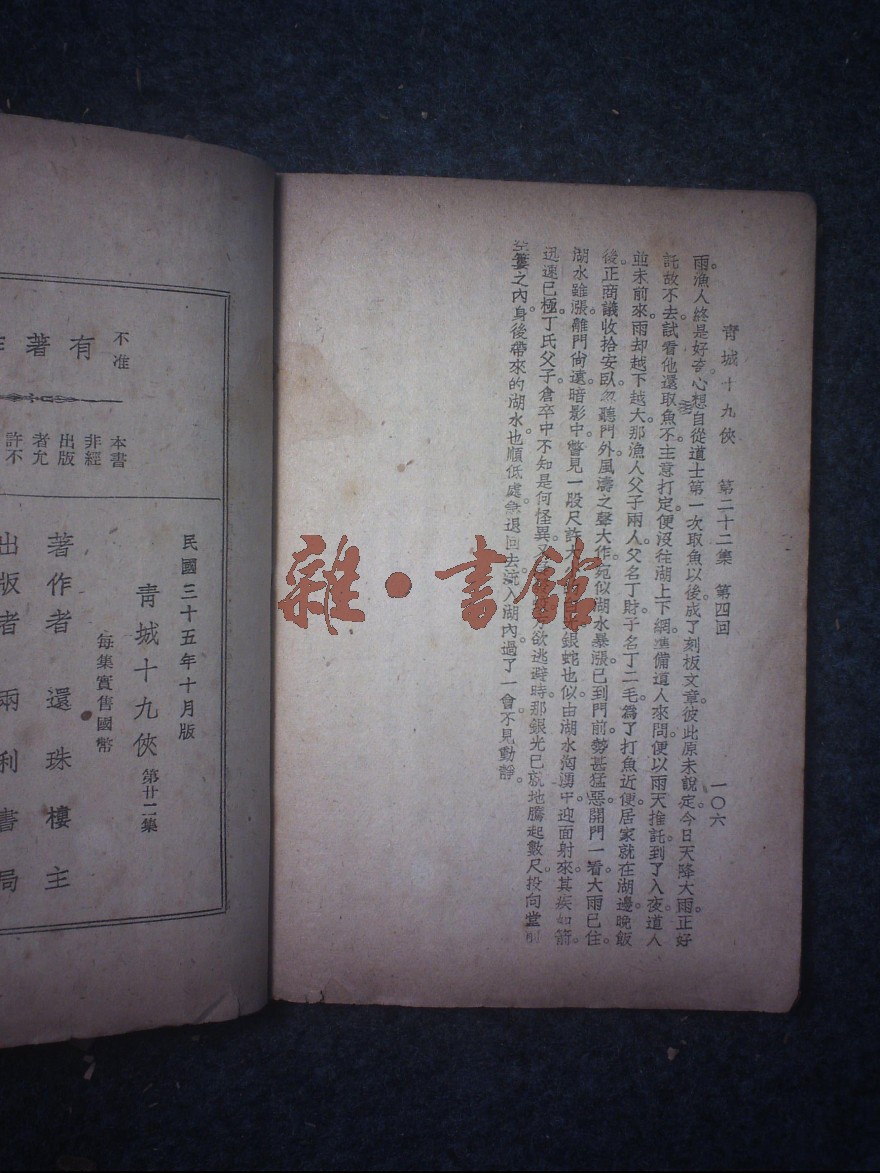 青城十九俠 第二十二集 第四回 一〇六
雨漁人終是好奇心想自從道士第一次取魚以後成了刻板文章彼此原未說定。今日天降大雨。正好
託故不去。試看他還取魚不。主意打定。便沒往湖上下網。準備道人來問。便以雨天推託。到了入夜。道人
並未前來。雨却越下越大。那漁人父子兩人。父名丁財。子名丁二毛。爲了打魚近便。居家就在湖邊。晚飯
後正商議收拾安臥。忽聽門外風濤之聲大作。宛似湖水暴漲。已到門前。勢甚猛惡。開門一看。大雨已住。
湖水雖漲。離門尙遠。暗影中瞥見一股尺許大 銀蛇也似由湖水洶湧中。迎面射來。其疾如箭。
迅速已極。丁氏父子倉卒中不知是何怪異。又 方欲逃避時。那銀光已就地騰起數尺。投向堂
簍之內。身後帶來的湖水也順低處 退回去。流入湖內。過了一會。不見動靜。
雜·書館
不准
有著
本書
非經
出版
者允
許不
民國三十五年十月版
青城十九俠 第廿二集
每集實售國幣
著作者 還珠樓主
出版者 兩利書局